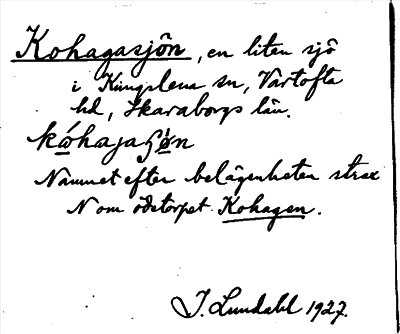 Kohagasjön, en liten sjö
i Kungslena sn, Vartofta
hd, Skaraborgs län.
Namnet efter belägenheten strax
N om ödetorpet Kohagen.
J. Lundahl 1927.